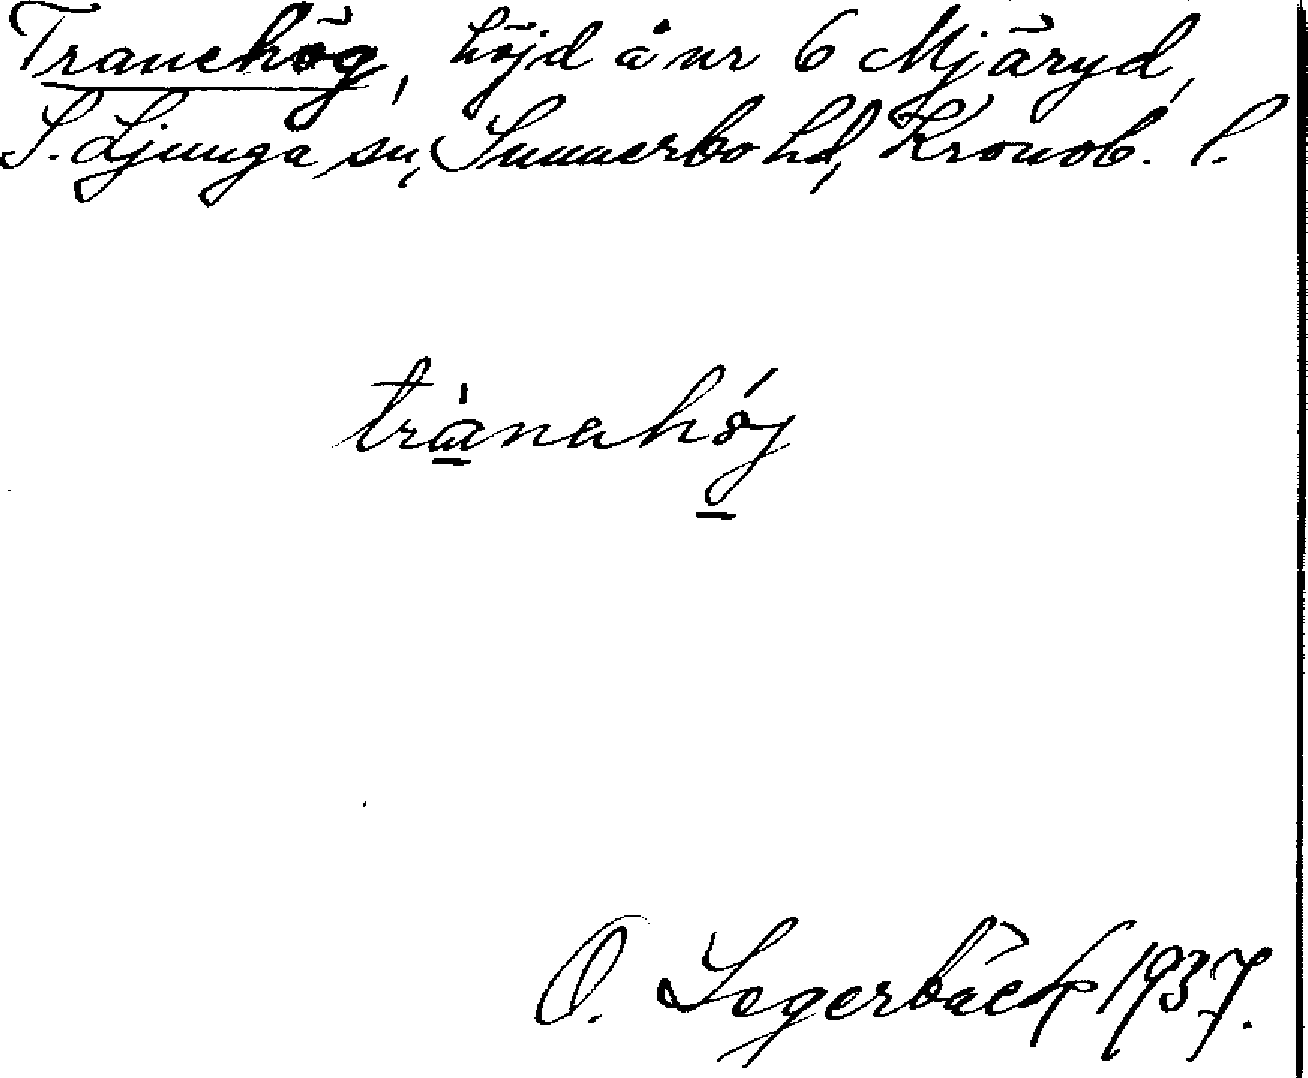 Tranehög, höjd å nr 6 Mjäryd,
S. Ljunga sn, Sunnerbo hd, Kronob. l.
trànahój
O. Segerbäck 1937.